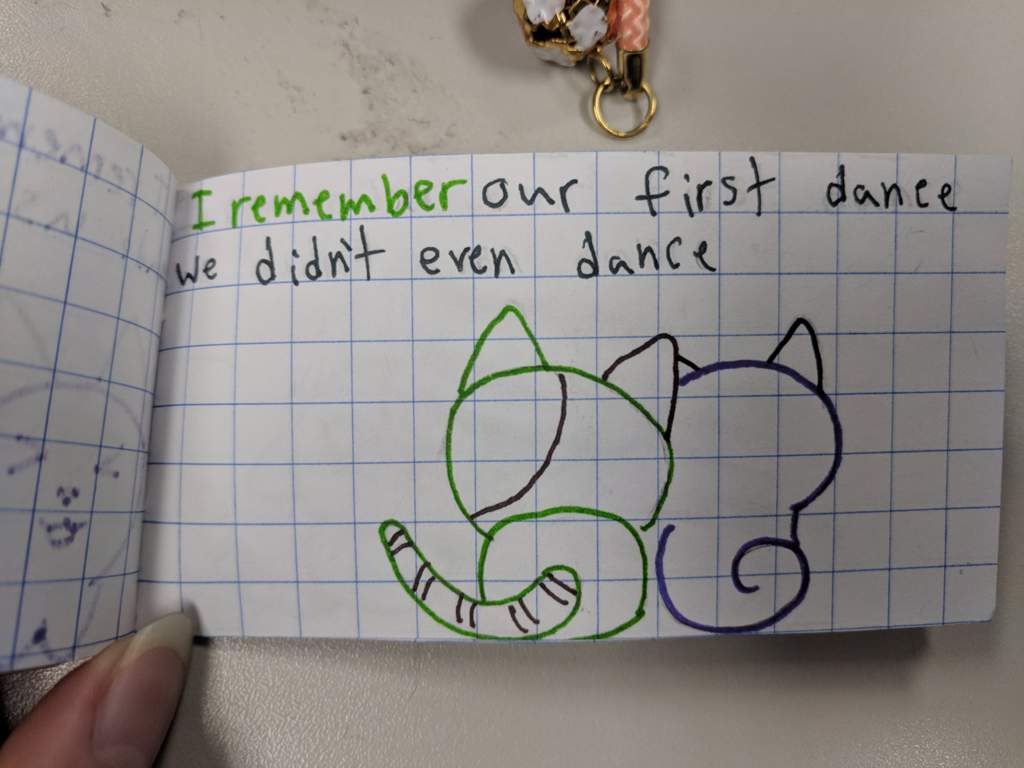 I remember our first dance
we didn't even dance